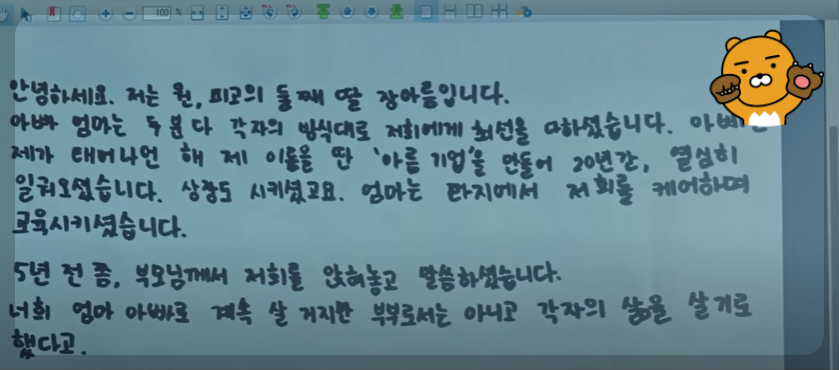 100 %
안녕하세요. 저는 원, 피고의 둘째 딸 장아름입니다.
아빠 엄마는 두 분 다 각자의 방식대로 저희에게 최선을 다하셨습니다.
제가 태어나던 해 제 이름을 딴 '아름 기업'을 만들어 20년간, 열심히
일궈오셨습니다. 상장도 시키셨고요. 엄마는 타지에서 저희를 케어하며
교육시키셨습니다.
5년 전 쯤, 부모님께서 저희를 앉혀놓고 말씀하셨습니다.
너희 엄마 아빠로 계속 살 거지만 부부로서는 아니고 각자의 삶을 살기로
했다고.